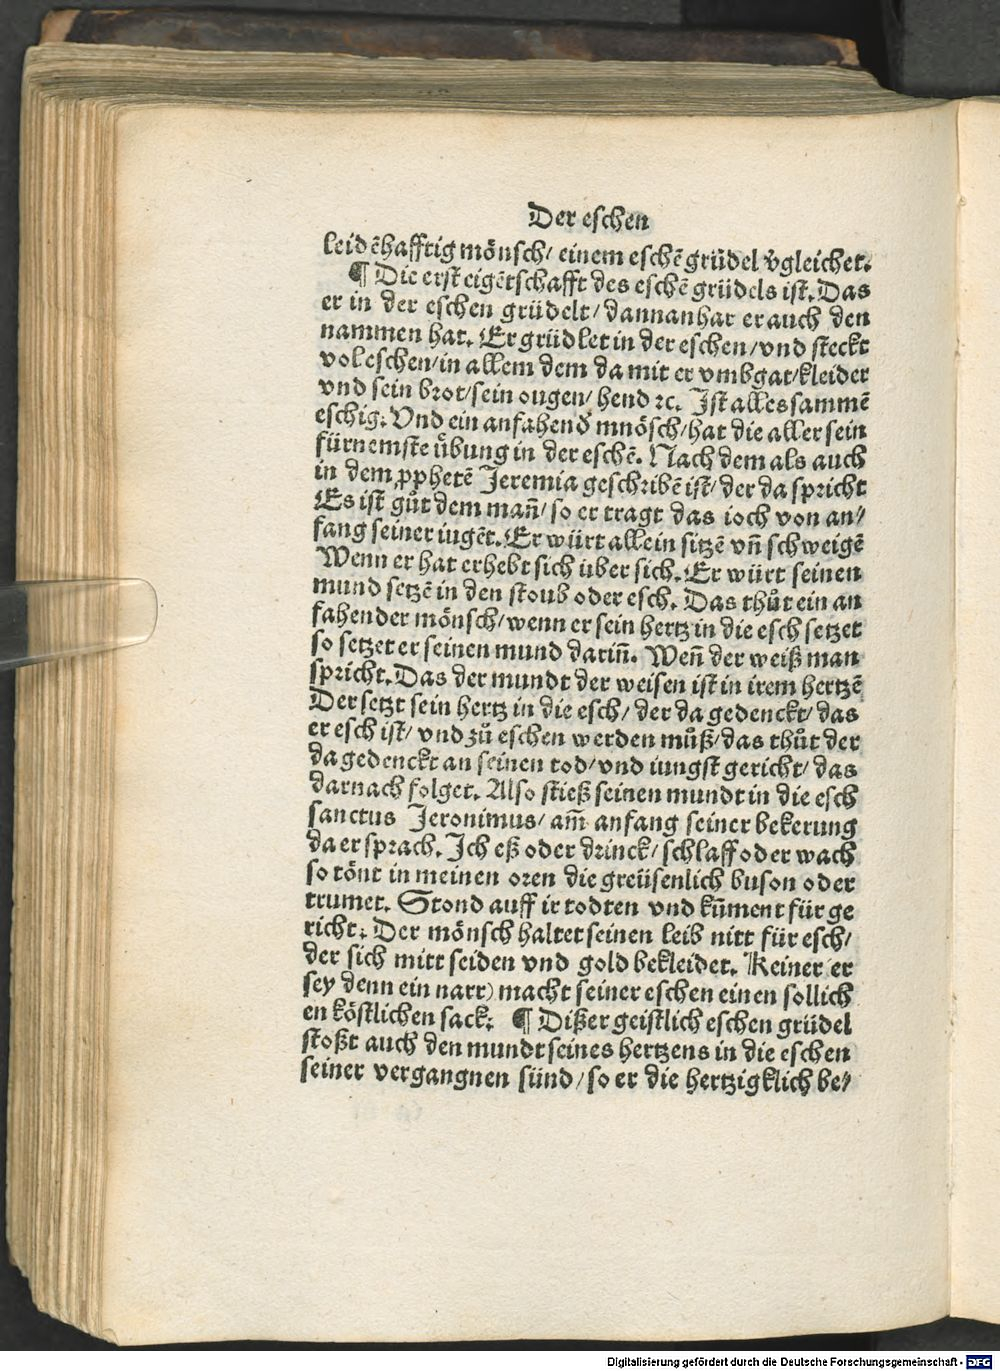 Der eschen
leidēhafftig mönsch/ einem eschē grüdel v̄gleichet.
¶ Die erst eigētschafft des eschē grüdels ist. Das
er in der eschen grüdelt/ dannanhar er auch den
nammen hat. Er grüdlet in der eschen/ vnd steckt
vol eschen/ in allem dem da mit er vmbgat/ kleider
vnd sein brot/ sein ougen/ hend ꝛc. Ist alles sammē
eschig. Vnd ein anfahend mnösch/ hat die aller sein
fürnemste u̇bung in der eschē. Nach dem als auch
in dem ꝓphetē Jeremia geschribē ist/ der da spricht
Es ist gůt dem man̄/ so er tragt das ioch von an/
fang seiner iugēt. Er würt allein sitzē vn̄ schweigē
Wenn er hat erhebt sich über sich. Er würt seinen
mund setzē in den stoub oder esch. Das thůt ein an
fahender mönsch/ wenn er sein hertz in die esch setzet
so setzet er seinen mund darin̄. Wen̄ der weiß man
spricht. Das der mundt der weisen ist in irem hertzē
Der setzt sein hertz in die esch/ der da gedenckt/ das
er esch ist/ vnd zů eschen werden můß/ das thůt der
da gedenckt an seinen tod/ vnd iungst gericht/ das
darnach folget. Also stieß seinen mundt in die esch
sanctus Jeronimus/ am̄ anfang seiner bekerung
da er sprach. Ich eß oder drinck/ schlaff oder wach
so tönt in meinen oren die greüsenlich buson oder
trumet. Stond auff ir todten vnd kūment für ge
richt. Der mönsch haltet seinen leib nitt für esch/
der sich mitt seiden vnd gold bekleidet. Keiner er
sey denn ein narr) macht seiner eschen einen sollich
en köstlichen sack. ¶ Dißer geistlich eschen grüdel
stoßt auch den mundt seines hertzens in die eschen
seiner vergangnen sünd/ so er die hertzigklich be/
Digitalisierung gefördert durch die Deutsche Forschungsgemeinschaft - DFG